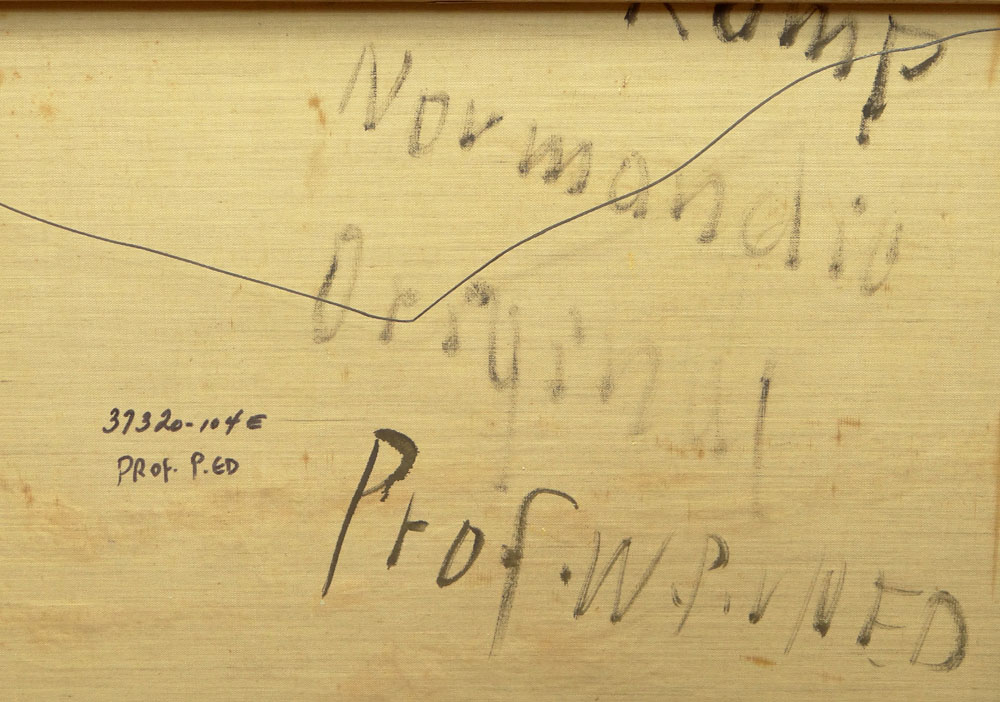 Kamp
Normandie
Original
37320-104E
PROF. P.ED
Prof. W.P.V NED